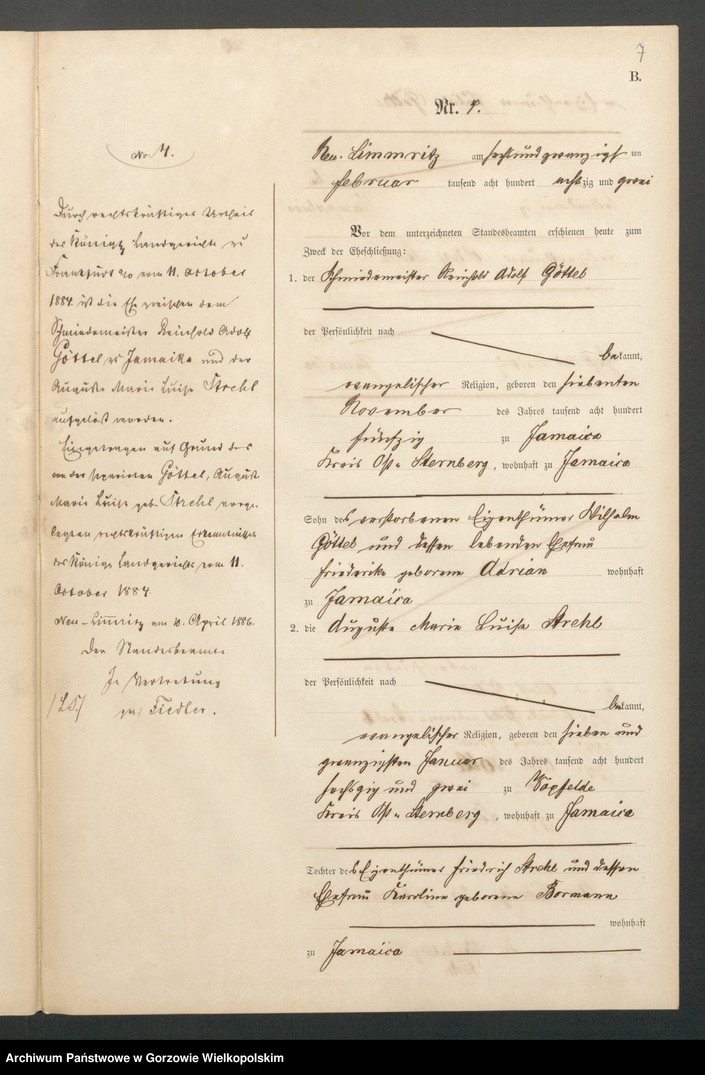 7
B.
Nr. 4.
Neu-Limmritz am sechsundzwanzigsten
Februar tausend acht hundert achtzig und zwei
Vor dem unterzeichneten Standesbeamten erschienen heute zum
Zweck der Eheschließung:
1. der Schmiedemeister Reinhold Adolf Göttel
der Persönlichkeit nach
bekannt,
evangelischer Religion, geboren den siebenten
November des Jahres tausend acht hundert
fünfzig zu Jamaica
Kreis Ost-Sternberg, wohnhaft zu Jamaica
Sohn des verstorbenen Eigenthümer Wilhelm
Göttel und dessen lebenden Ehefrau
Friederike geborene Adrian wohnhaft
zu Jamaica
2. die Auguste Marie Luise Strehl
der Persönlichkeit nach
bekannt,
evangelischer Religion, geboren den sieben und
zwanzigsten Januar des Jahres tausend acht hundert
sechszig und zwei zu
Kreis Ost-Sternberg, wohnhaft zu Jamaica
Tochter des Eigenthümer Friedrich Strehl und dessen
Ehefrau Karoline geborene Bormann
wohnhaft
zu Jamaica
No 4.
Durch rechtskräftiges Urtheil
des Königl. Landgerichts zu
Frankfurt a/o vom 11. October
1884 ist die Ehe zwischen dem
Schmiedemeister Reinhold Adolf
Göttel zu Jamaika und der
Auguste Marie Luise Strehl
aufgelöst worden.
Eingetragen auf Grund des
von der separirten Göttel, Auguste
Marie Luise geb. Strehl vorge-
legten rechtskräftigen Erkenntnisses
des Königl. Landgerichts vom 11.
October 1884.
Neu-Limritz am 10. April 1886.
Der Standesbeamte
In Vertretung
/L.S./ gez. Fiedler.
Archiwum Państwowe w Gorzowie Wielkopolskim